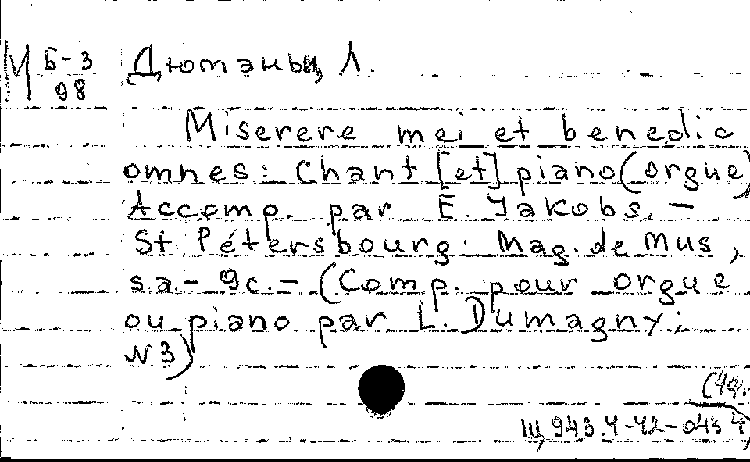 М Б-3 Дютаньы, Л.
98
Miserere mei et benedic
omnes: Chant [et] piano (orgue)
Accomp. par E. Jakobs. -
St Pétersbourg. Mag. de Mus,
s.a. - 9c. - (Comp. pour orgue
ou piano par L. Dumagny;
N3)